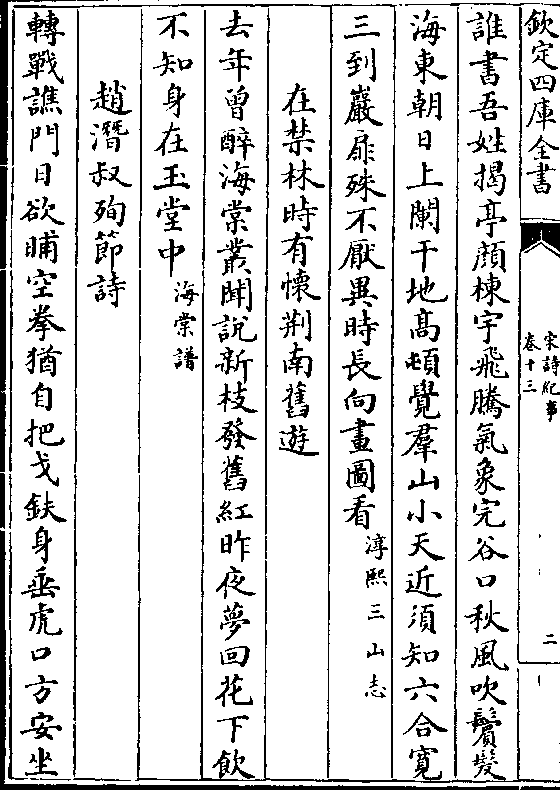 欽定四庫全書
宋詩紀事
卷十三
二
誰書吾姓揭亭顔棟宇飛騰氣象完谷口秋風吹鬢髮
海東朝日上闌干地髙頓覺羣山小天近須知六合寛
三到巖扉殊不厭異時長向畫圖看淳熙三山志
在禁林時有懷荆南舊遊
去年曾醉海棠叢聞説新枝發舊紅昨夜夢回花下飲
不知身在玉堂中海棠譜
趙潛叔殉節詩
轉戰譙門日欲晡空拳猶自把戈鈇身垂虎口方安坐